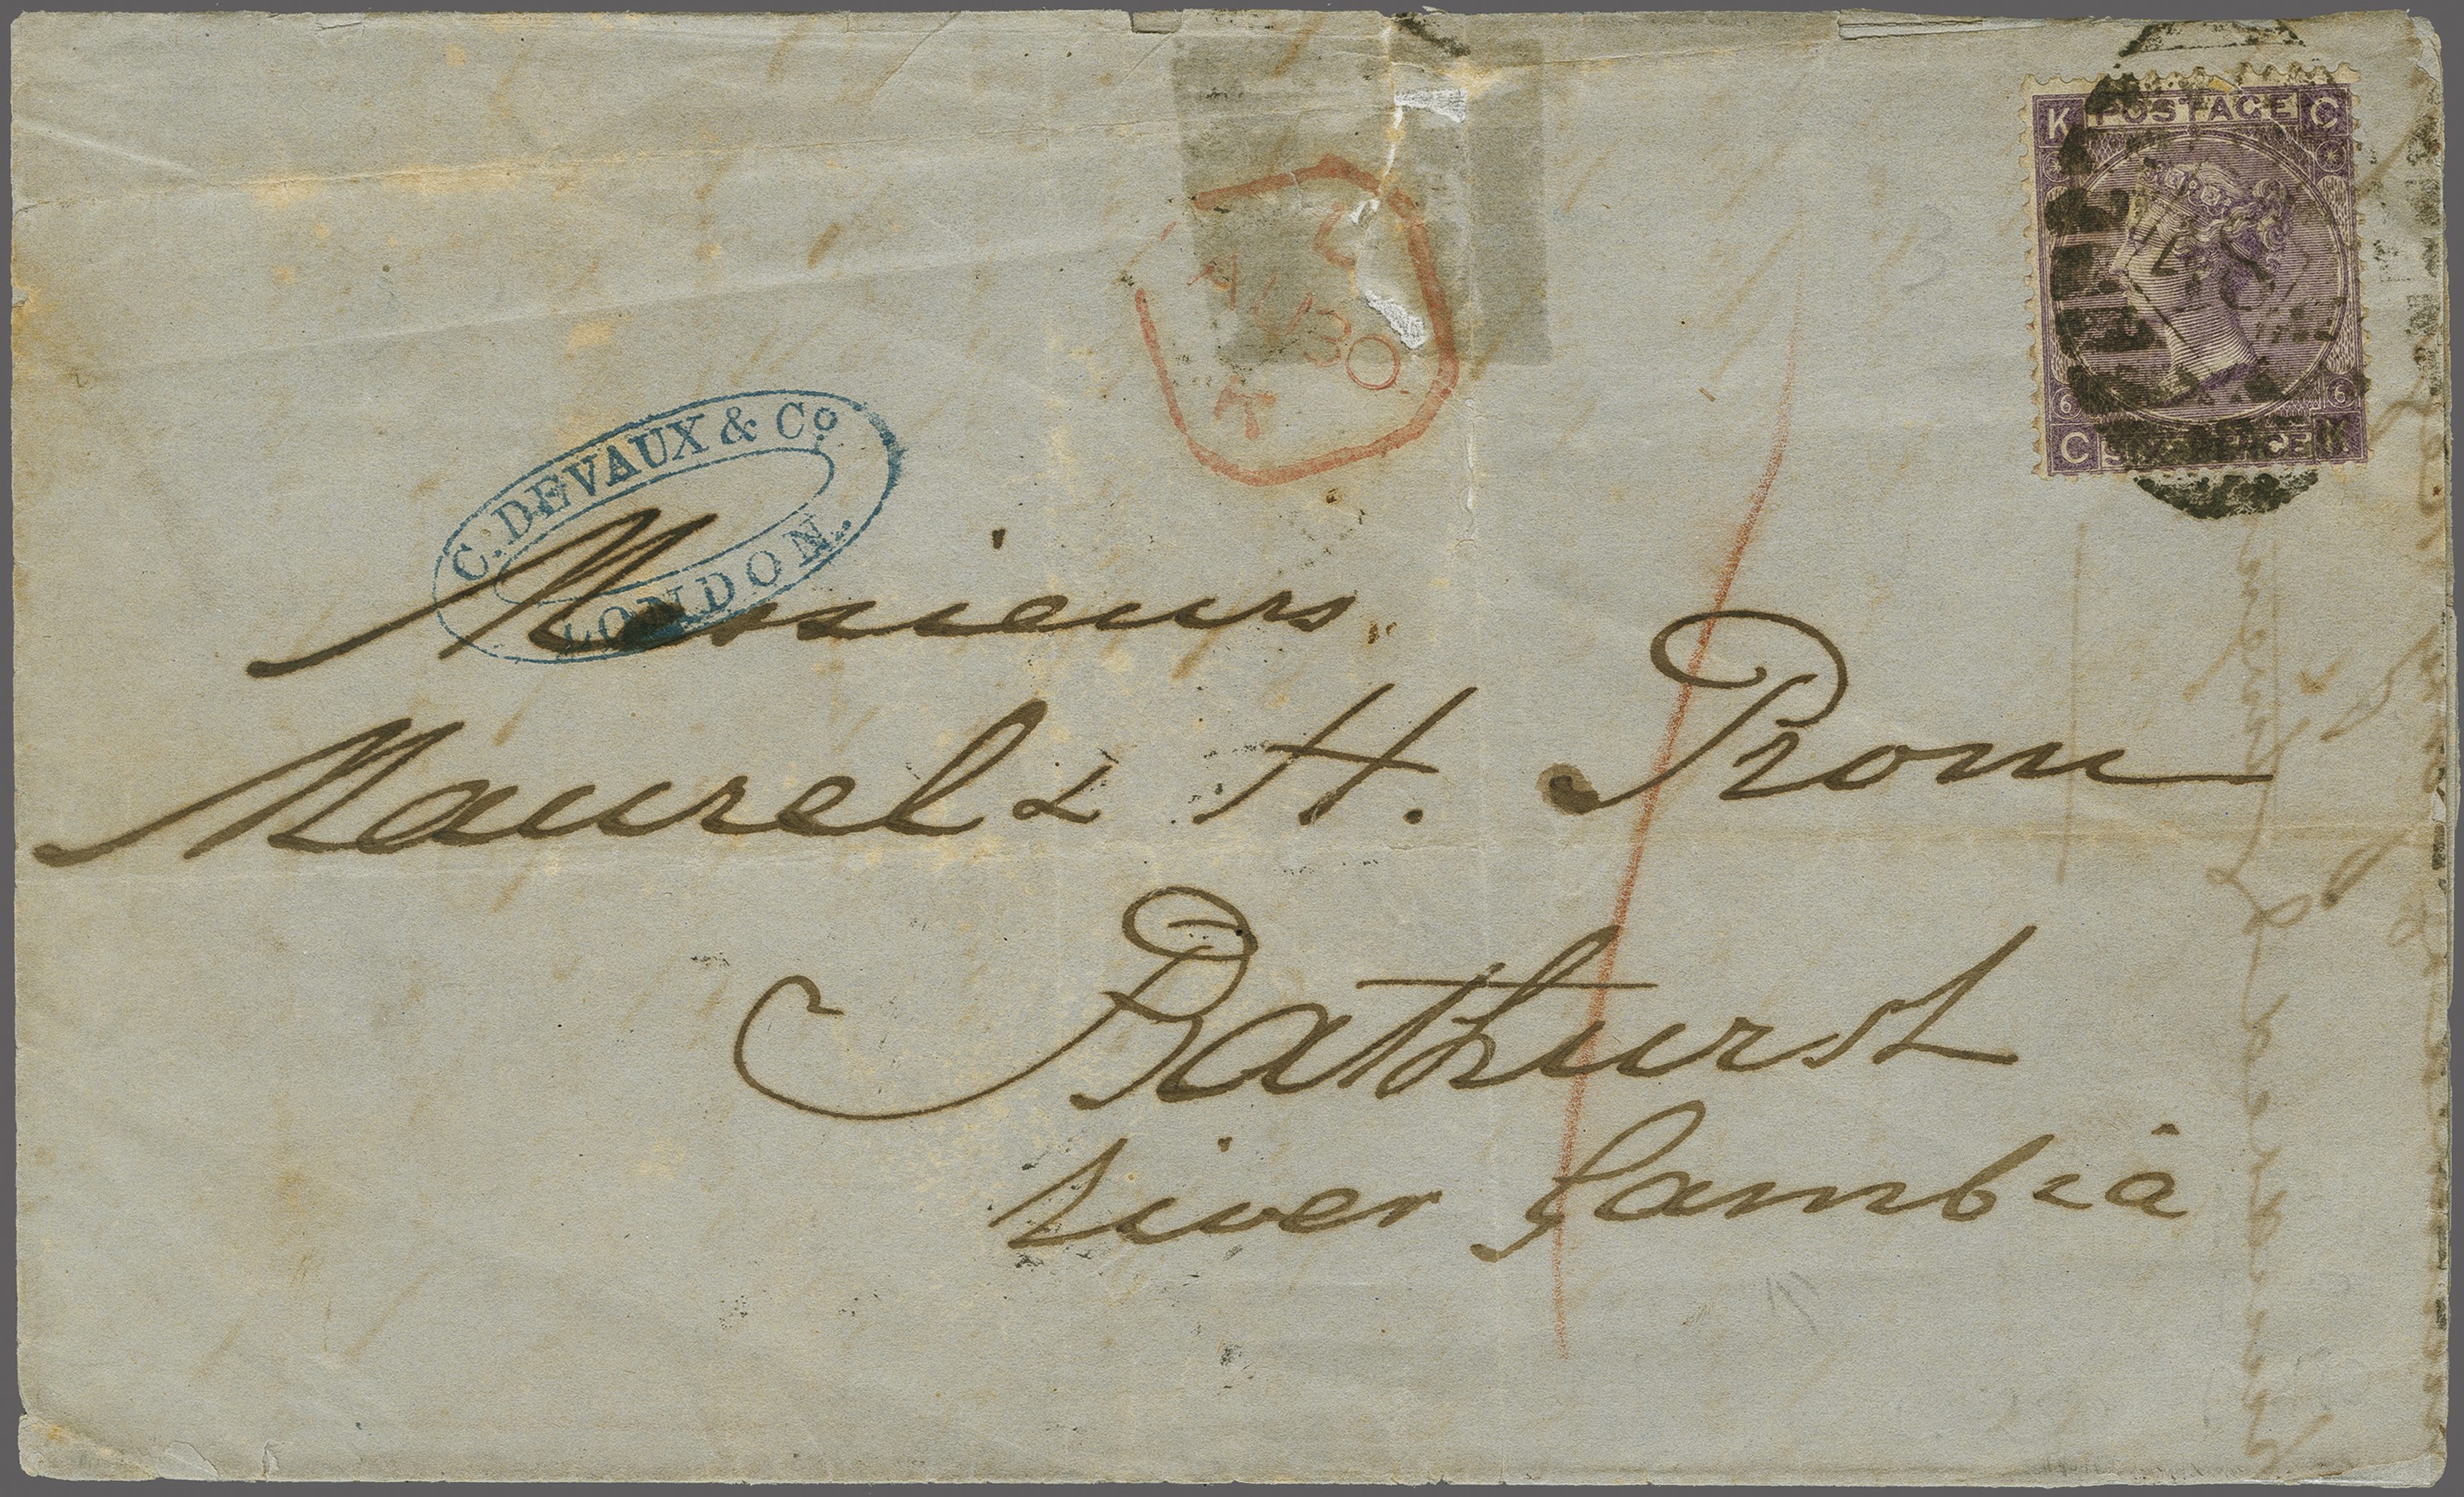 K POSTAGE C
6 6
C SIX PENCE K
C
AU 30
C. DEVAUX & Co
LONDON.
Messieurs
Maurel & H. Prom
Bathurst
river Gambia